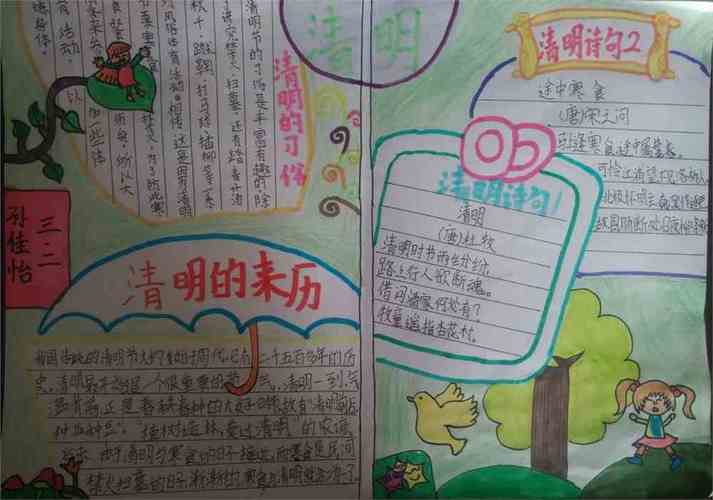 清明
清明的习俗
清明节的习俗是丰富有趣的,除
讲究禁火、扫墓,还有踏青、荡
秋千、蹴鞠、打马球、插柳等一系
风俗体育活动。相传这是因为清明
为了防止寒
所以大
加一些体
育活动,以
锻炼身体。
三·二
孙佳怡
清明的来历
我国传统的清明节大约始于周代,已有二千五百多年的历
史。清明最开始是一个很重要的节气,清明一到,气
温升高,正是春耕春种的大好时节,故有“清明前后,
种瓜种豆”。“植树造林,莫过清明”的农谚。
后来,由于清明与寒食的日子接近,而寒食是民间
禁火扫墓的日子,渐渐的,寒食与清明就合二为一了。
清明诗句1
清明
(唐)杜牧
清明时节雨纷纷,
路上行人欲断魂。
借问酒家何处有?
牧童遥指杏花村。
清明诗句2
途中寒食
(唐)宋之问
马上逢寒食,途中属暮春。
可怜江浦望,不见洛桥人。
北极怀明主,南溟作逐臣。
故园肠断处,日夜柳条新。